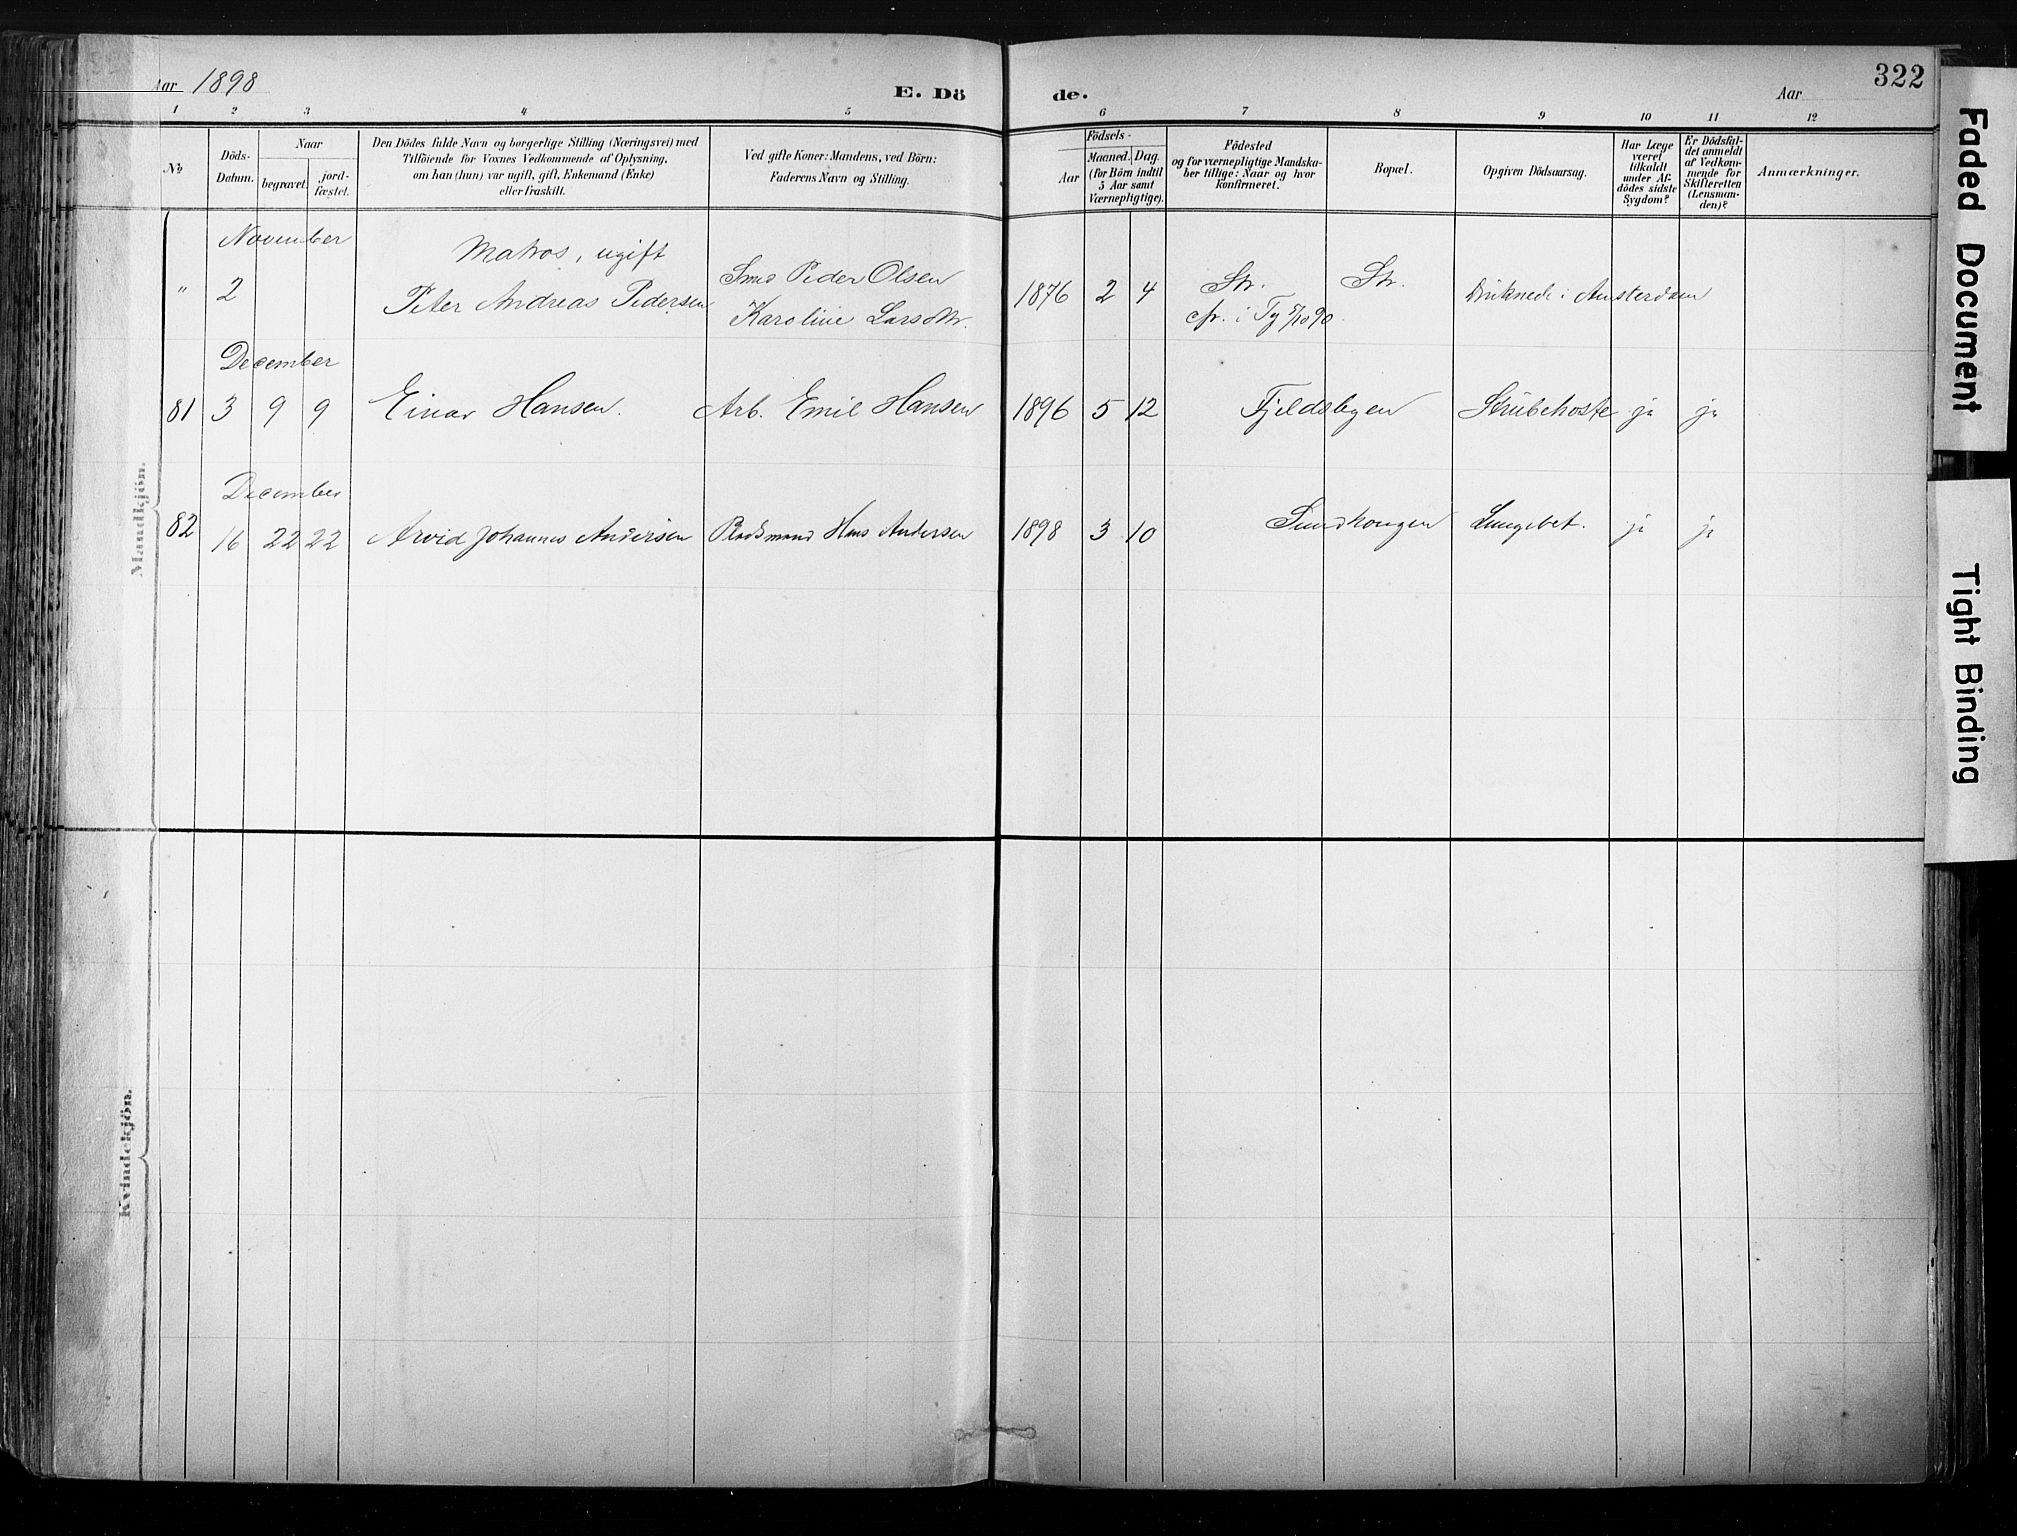 Aar 1898
E. Döde.
Aar
322
1 2 3 4 5 6 7 8 9 10 11 12
No
Döds-
Datum.
Naar
begravet.
jord-
fæstet.
Den Dödes fulde Navn og borgerlige Stilling (Næringsvei) med
Tilföiende for Voxnes Vedkommende af Oplysning,
om han (hun) var ugift, gift, Enkemand (Enke)
eller fraskilt.
Ved gifte Koner: Mandens, ved Börn:
Faderens Navn og Stilling.
Födsels-
Aar
Maaned. Dag.
(for Börn indtil
5 Aar samt
Værnepligtige).
Födested
og for værnepligtige Mandska-
ber tillige: Naar og hvor
konfirmeret.
Bopæl.
Opgiven Dödsaarsag.
Har Læge
været
tilkaldt
under Af-
dödes sidste
Sygdom?
Er Dödsfal-
det anmeldt
af Vedkom-
mende for
Skifteretten
(Lensman-
den)?
Anmærkninger.
Mandkjön.
November
" 2
Matros, ugift
Peter Andreas Pedersen
Smed Peder Olsen
Karoline Larsdtr.
1876 2 4
Str.
cfr. i Tg 5/10 90.
Str.
Druknede i Amsterdam
December
81 3 9 9 Einar Hansen. Arb. Emil Hansen 1896 5 12 Fjeldsbyen Strubehoste ja ja
December
82 16 22 22 Arvid Johannes Andersen Pladsmand Hans Andersen 1898 3 10 Sundhougen Lungebet. ja ja
Kvindekjön.
Faded Document
Tight Binding